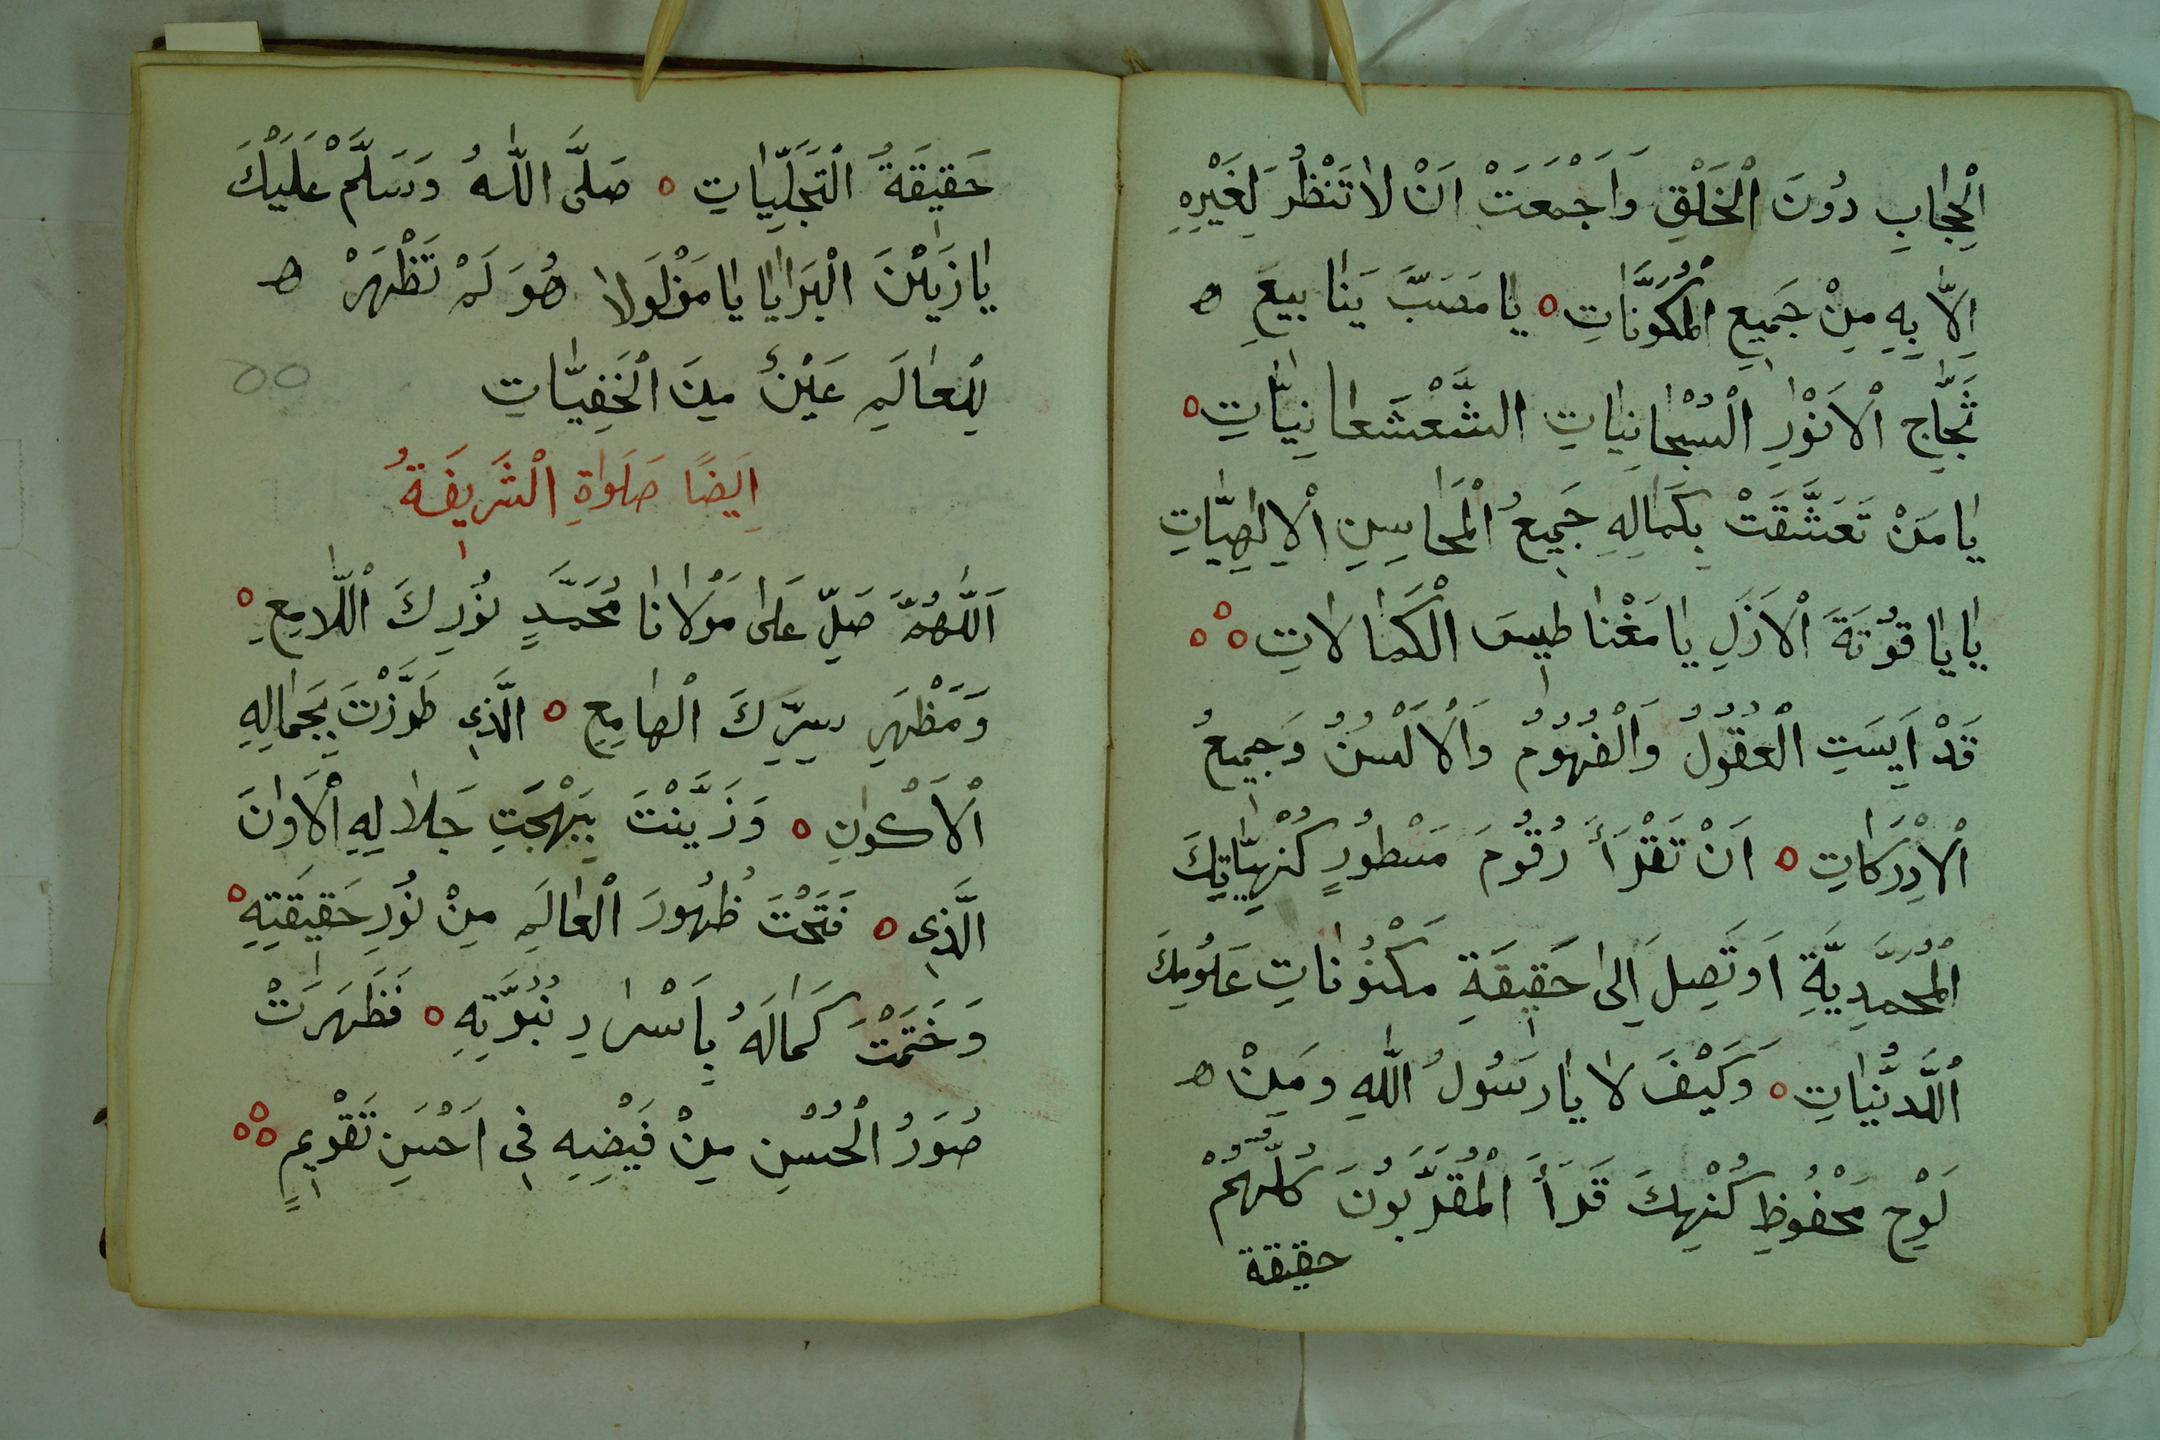 اْلحِجَابِ دُونَ اْلخَلْقِ وَاَجْمَعَتْ اَنْ لَا تَنْظُرَ لِغَيْرِهِ
اِلَّا بِهِ مِنْ جَمِيعِ اْلمُكَوَّنَاتِ ه يَا مَصَبَّ يَنَابِيعَ ه
ثَجَّاجِ اْلاَنْوَرِ السُّبْحَانِيَاتِ الشَّعْشَعَانِيَّاتِ ه
يَا مَنْ تَعَشَّقَتْ بِكَمَالِهِ جَمِيعُ اْلمَحَاسِنِ اْلاِلٰهِيَّاتِ
يَا يَاقُوتَةَ اْلاَزَلِ يَا مَغْنَاطِيسَ الْكَمَالَاتِ ه ه ه
قَدْ اَيِسَتِ الْعُقُولُ وَالْفُهُومُ وَاْلاَلْسُنُ وَجَمِيعُ
اْلاِدْرَكَاتِ ه اَنْ تَقْرَأَ رُقُومَ مَسْطُورٍ كُنْهِيَّاتِكَ
الْمُحَمَّدِيَّةِ اَوتَصِلَ اِلَى حَقِيقَةِ مَكْنُونَاتِ عَلُومِكَ
اللَّدُنِّيَاتِ ه وَكَيْفَ لَا يَا رَسُولُ اللّٰهِ وَمِنْ ه
لَوْحِ مَحْفُوظِ كُنْهِكَ قَرَأَ الْمُقَرَّبُونَ كُلُّهُمْ
حقيقة
حَقِيقَةُ التَّجَلِّيَاتِ ه صَلَّى اللّٰهُ وَسَلَّمْ عَلَيْكَ
يَا زَيْنَ الْبَرَايَا يَا مَوْلَولَا هُوَ لَمْ تَظْهَرْ ه
لِلْعَالَمِ عَيْنٌ مِنَ الْخَفِيَّاتِ
اَيضًا صَلَوٰةِ الْشَرِيفَةُ
اَللّٰهُمَّ صَلِّ عَلَى مَوْلَانَا مُحَمَّدٍ نُورِكَ اللَّامِعِ ه
وَمَظْهَرِ سِرِّكَ الْهَامِعِ ه الَّذِى طَرَّزْتَ بِجَمَالِهِ
اْلاَكْوَانِ ه وَزَيَّنْتَ بِبَهْجَتِ جَلَالِهِ اْلاَوَانَ
الَّذِى ه فَتَحْتَ ظُهُورَ الْعَالَمِ مِنْ نُورِ حَقِيقَتِهِ ه
وَخَتَمْتَ كَمَالَهُ بِاَسْرَارِ نُبُوَّتِهِ ه فَظَهَرَتْ
صُوَرُ الْحُسْنِ مِنْ فَيْضِهِ فِى اَحْسَنِ تَقْوِيمٍ ه ه ه